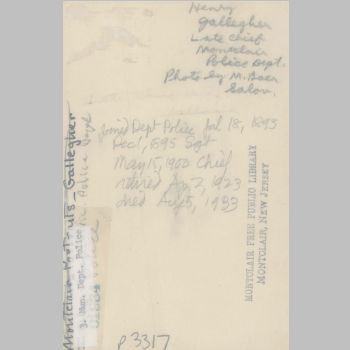 Henry
Gallegher
Late Chief
Montclair
Police Dept.
Photo by M. Baer
Salon.
Joined Dept Police Jul 18, 1893
Dec 1, 1895 Sgt
May 15, 1900 Chief
retired Ap 2, 1923
died Aug 5, 1933
MONTCLAIR FREE PUBLIC LIBRARY
MONTCLAIR, NEW JERSEY
Gallegher
3. Mun. Dept. Police
P3317